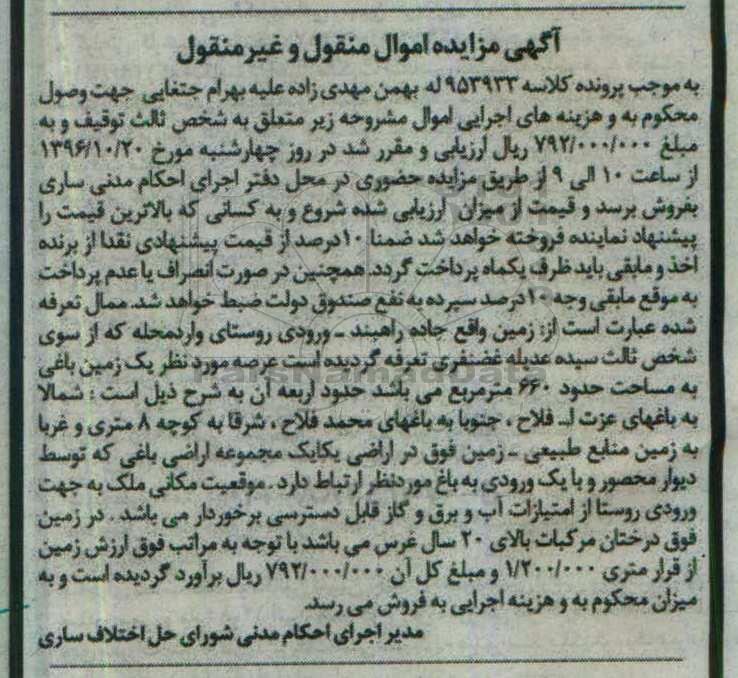 آگهی مزایده اموال منقول و غیر منقول
به موجب پرونده کلاسه ۹۵۳۹۳۳ له بهمن مهدی زاده علیه بهرام جتغایی جهت وصول
محکوم به و هزینه های اجرایی اموال مشروحه زیر متعلق به شخص ثالث توقیف و به
مبلغ ۷۹۲/۰۰۰/۰۰۰ ریال ارزیابی و مقرر شد در روز چهارشنبه مورخ ۱۳۹۶/۱۰/۲۰
از ساعت ۱۰ الی ۹ از طریق مزایده حضوری در محل دفتر اجرای احکام مدنی ساری
بفروش برسد و قیمت از میزان ارزیابی شده شروع و به کسانی که بالاترین قیمت را
پیشنهاد نماینده فروخته خواهد شد ضمنا ۱۰درصد از قیمت پیشنهادی نقدا از برنده
اخذ و مابقی باید ظرف یکماه پرداخت گردد. همچنین در صورت انصراف یا عدم پرداخت
به موقع مابقی وجه ۱۰درصد سپرده به نفع صندوق دولت ضبط خواهد شد. ممال تعرفه
شده عبارت است از: زمین واقع جاده راهبند – ورودی روستای واردمحله که از سوی
شخص ثالث سیده عدیله غضنفری تعرفه گردیده است عرصه مورد نظر یک زمین باغی
به مساحت حدود ۶۶۰ مترمربع می باشد حدود اربعه آن به شرح ذیل است : شمالا
به باغهای عزت ا... فلاح ، جنوبا به باغهای محمد فلاح ، شرقا به کوچه ۸ متری و غربا
به زمین منابع طبیعی – زمین فوق در اراضی یکایک مجموعه اراضی باغی که توسط
دیوار محصور و با یک ورودی به باغ موردنظر ارتباط دارد . موقعیت مکانی ملک به جهت
ورودی روستا از امتیازات آب و برق و گاز قابل دسترسی برخوردار می باشد . در زمین
فوق درختان مرکبات بالای ۲۰ سال غرس می باشد با توجه به مراتب فوق ارزش زمین
از قرار متری ۱/۲۰۰/۰۰۰ و مبلغ کل آن ۷۹۲/۰۰۰/۰۰۰ ریال برآورد گردیده است و به
میزان محکوم به و هزینه اجرایی به فروش می رسد.
مدیر اجرای احکام مدنی شورای حل اختلاف ساری
ParsNamadData